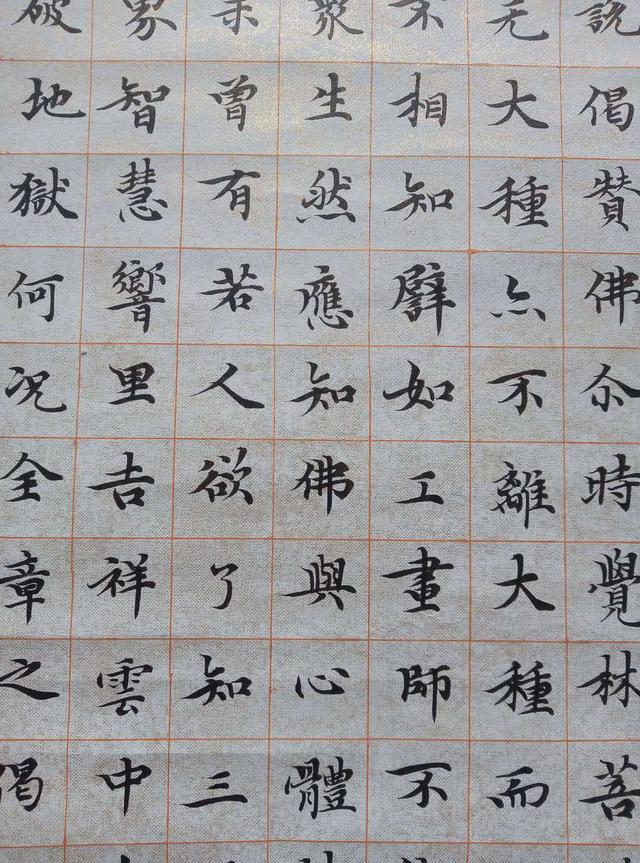 説偈贊佛尒時覺林菩
无大種亦不離大種而
不相知譬如工畫師不
衆生然應知佛與心體
未曾有若人欲了知三
界智慧響里吉祥雲中
破地獄何況全章之偈